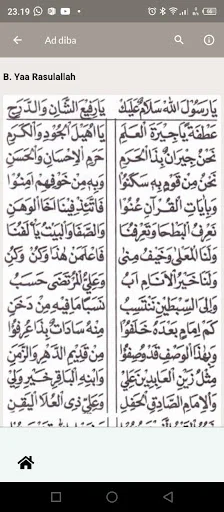 23.19
79
Ad diba
B. Yaa Rasulallah
يَارَسُوْلَ اللهِ سَلَامٌ عَلَيْكَ يَارَفِيْعَ الشَّانِ وَالدَّرَجِ
عَطْفَةً يَّاجِيْرَةَ الْعَلَمِ يَا اُهَيْلَ الْجُوْدِ وَالْكَرَمِ
نَحْنُ جِيْرَانٌ بِذَا الْحَرَمِ حَرَمِ الْاِحْسَانِ وَالْحَسَنِ
نَحْنُ مِنْ قَوْمٍ بِهِ سَكَنُوْا وَبِهِ مِنْ خَوْفِهِمْ اَمِنُوْا
وَبِاٰيَاتِ الْقُرْاٰنِ عُنُوْا فَاتَّئِدْ فِيْنَا اَخَا الْوَهَنِ
نَعْرِفُ الْبَطْحَا وَتَعْرِفُنَا وَالصَّفَا وَالْبَيْتُ يَأْلَفُنَا
وَلَنَا الْمَعْلٰى وَخَيْفُ مِنٰى فَاعْلَمَنْ هٰذَا وَكُنْ وَكُنِ
وَلَنَا خَيْرُ الْاَنَامِ اَبُ وَعَلِيُّ الْمُرْتَضٰى حَسَبُ
وَاِلَى السِّبْطَيْنِ نَنْتَسِبُ نَسَبًا مَّافِيْهِ مِنْ دَخَنِ
كَمْ اِمَامٍ بَعْدَهُ خَلَفُوْا مِنْهُ سَادَاتٌ بِذَا عُرِفُوْا
وَبِهٰذَا الْوَصْفِ قَدْ وُصِفُوْا مِنْ قَدِيْمِ الدَّهْرِ وَالزَّمَنِ
مِثْلُ زَيْنِ الْعَابِدِيْنَ عَلِيْ وَابْنِهِ الْبَاقِرِ خَيْرِ وَلِيْ
وَالْاِمَامِ الصَّادِقِ الْحَفِلِ وَعَلِيٍّ ذِى الْعُلَا الْيَقِنِ